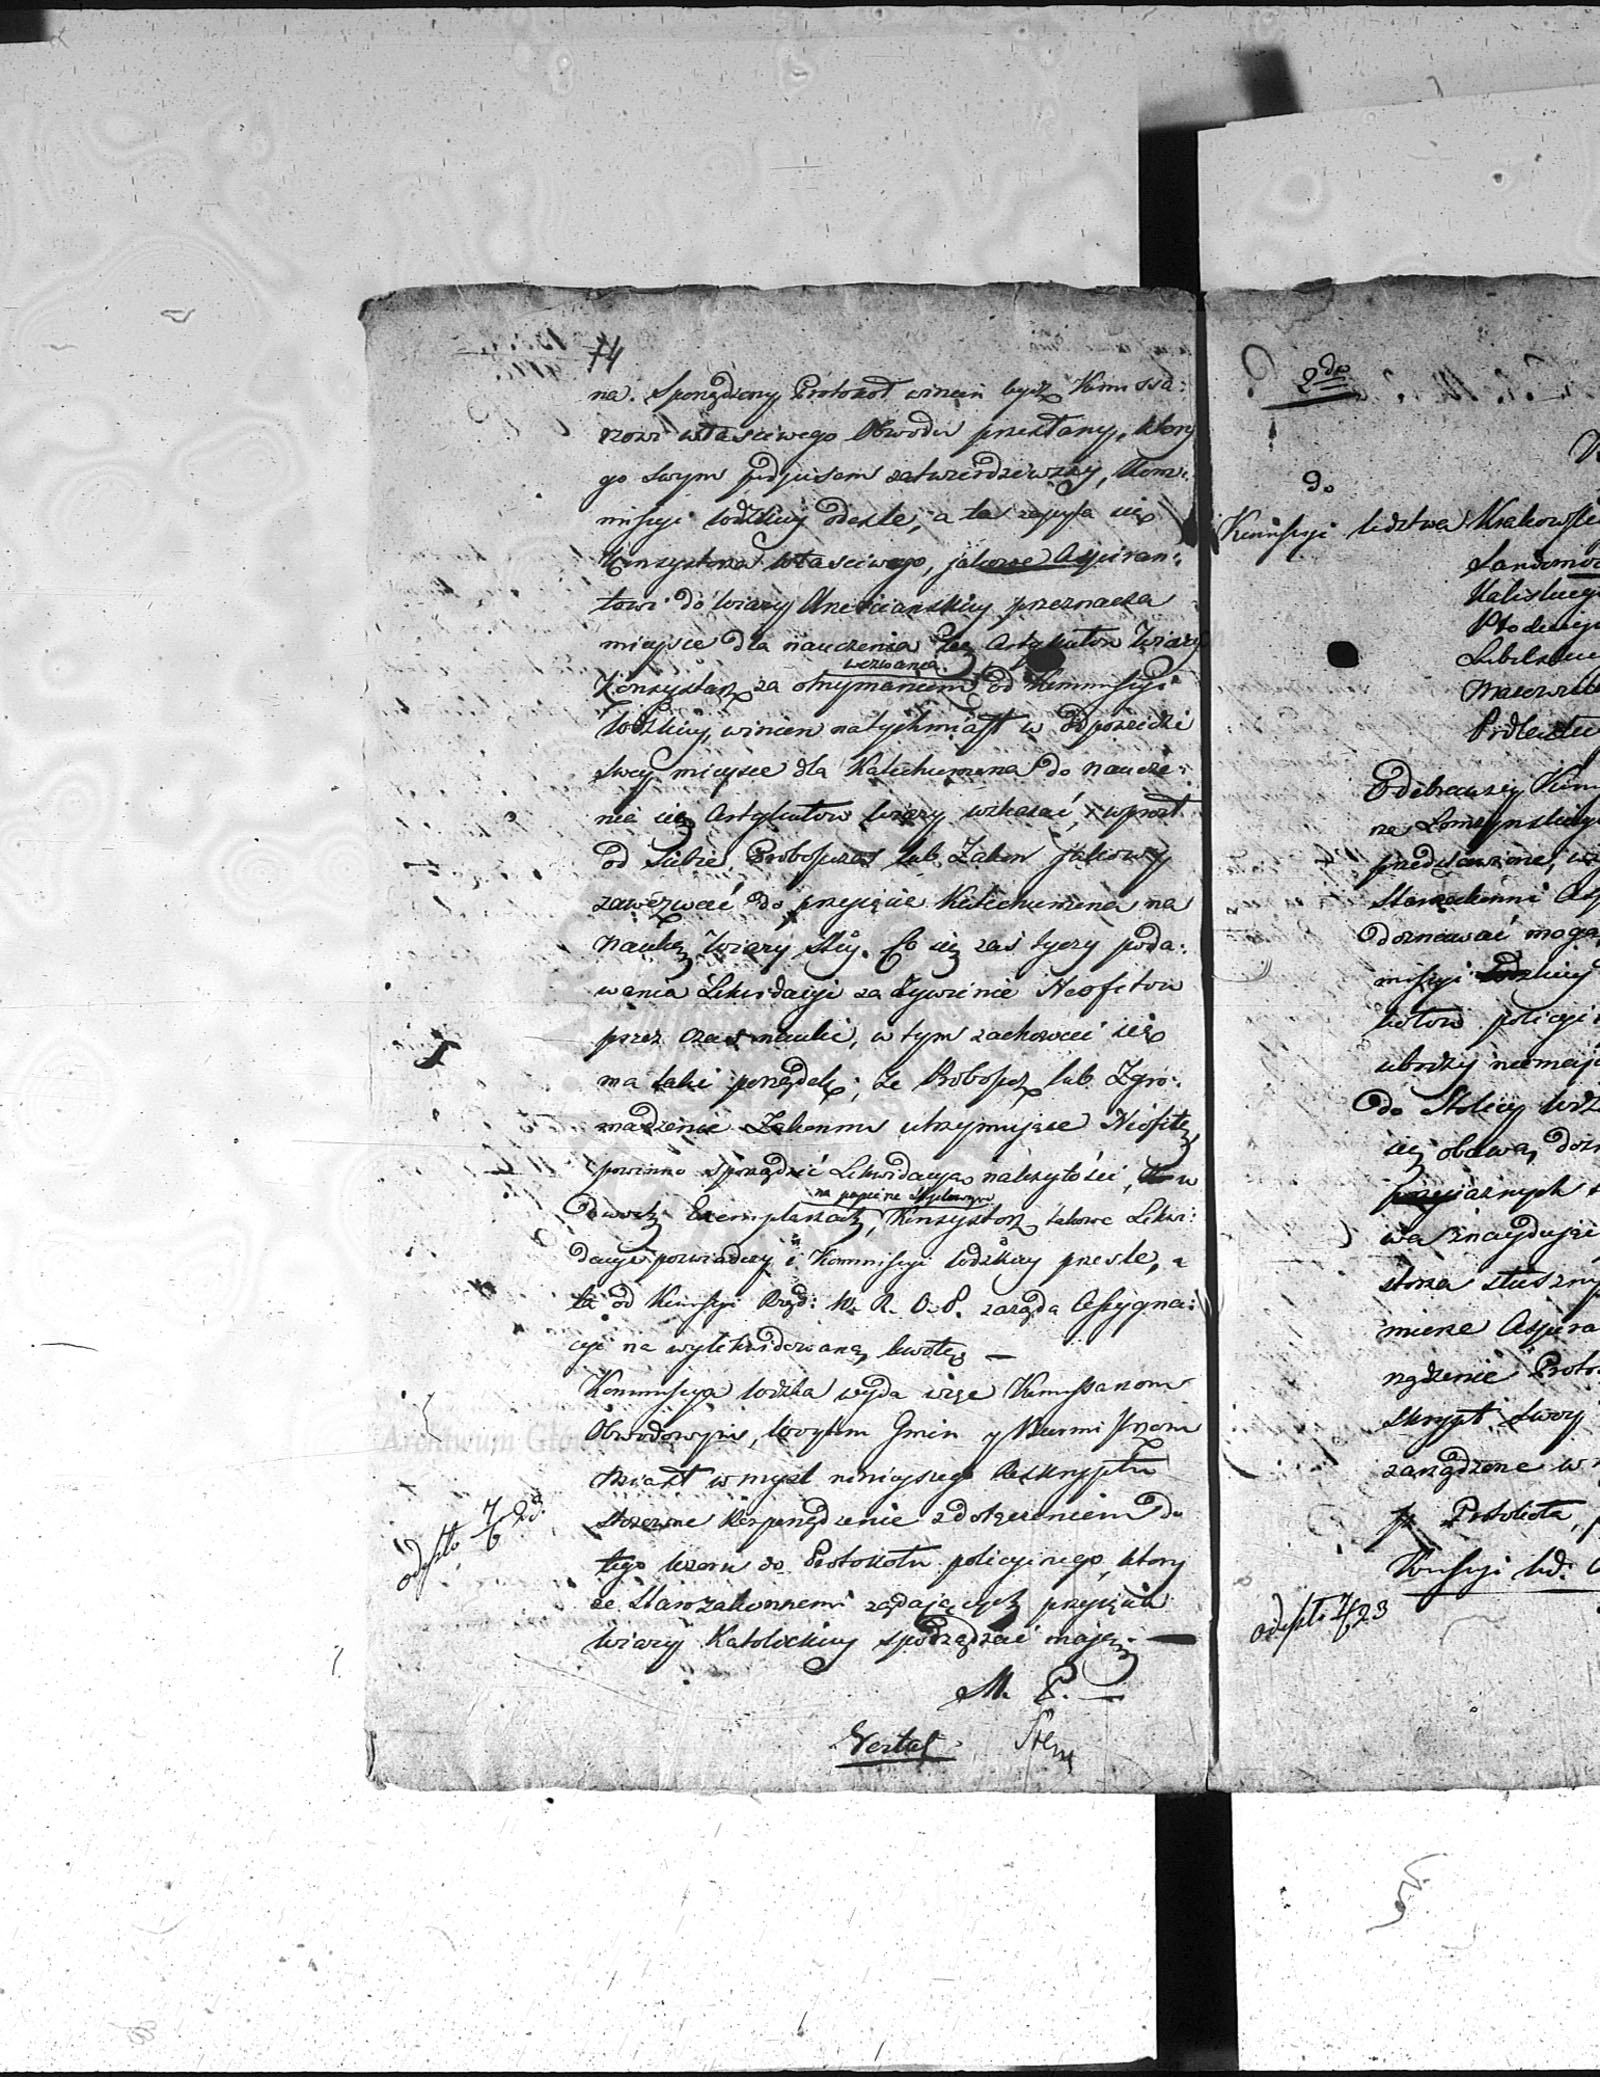 74
na. Sporządzony Protokoł winien bydź Kommssa:
rzowi właściwego Obwodu przesłany, ktory
go swym podpisem zatwierdziwszy, Kom:
missyi Wdzkiey odeszle, a ta zapyta się
Konsystorza właściwego, jakowe Aspiran:
towi do Wiary Chrześciańskiey przeznacza
mieysce dla nauczenia się Artykułow Wiary
wezwania
Konsystorz za otrzymaniem od Kommissyi
Wdzkiey, winien natychmiast w Odpowiedzi
swey mieysce dla Katechumena do naucze:
nia się Artykułow wiary wskazać, i wprost
od Siebie Proboszcza lub Zakon jakowy
zawezwać do przyjęcia Katechumena na
Naukę Wiary Stey. Co się zaś tyczy poda:
wania Likwidacyi za żywienie Neofitow
przez czas nauki, w tym zachować się
ma taki porządek, że Proboszcz lub Zgro:
madzenie Zakonne utrzymujące Neofitę
powinno sporządzić Likwidacyą należytości, w
na papierze stęplowym
dwoch Exemplarzach, Konsystorz takowe Likwi:
dacye poświadczy i Kommissyi Wdzkiey prześle, a
ta od Kommssyi Rząd: W. R. O. P. zarząda Assygna:
cyi na wylikwidowaną kwotę —
Kommissya Wdzka wyda więc Kommissarzom
Obwodowym, Woytom Gmin y Burmistrzom
Miast w myśl ninieyszego Reskryptu
stosowne Rozporządzenie z dołączeniem do
tego wzoru do Protokołu policyinego, ktory
ze Starozakonnemi rządających przyjęcia
Wiary Katolickiey sporządzać mają. —
M. P. —
odeszło 7/6 23.
2do
do
Kommssyi Wdztwa Krakowskie
Sandomir
Kaliskiego
Płockiego
Lubelskie
Mazowiec
Podlaskie
Odebrawszy Komm
ra Łomżyńskiego
przedstawione, w
Starozakonni Asp
doznawać mogą
missyi Wdzkiey
kołow policyi
ubodzy niemają
do Stolicy Wdz
się obawą, doz
wa znaydujące
stora słuszny
mienie Aspira
rządzenie Proto
Skrypt swoy
zarządzone w
Protokoła,
Kommssyi Wd:
odeszło 7/6 23